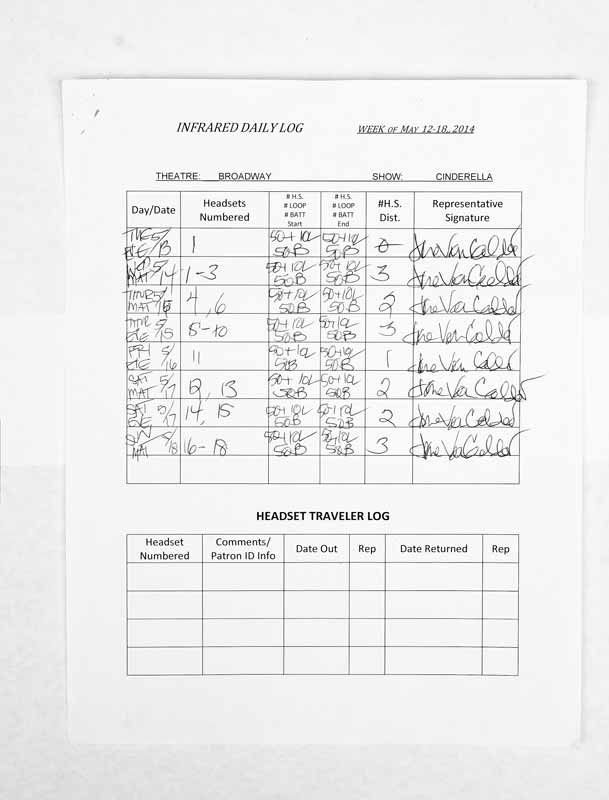 INFRARED DAILY LOG WEEK OF MAY 12-18, 2014
THEATRE: BROADWAY SHOW: CINDERELLA
Day/Date Headsets Numbered # H.S. # LOOP # BATT Start # H.S. # LOOP # BATT End #H.S. Dist. Representative Signature
TUES 5/13 EVE 1 50+10L 50B 50+10L 50B 0
WED 5/14 MAT 1-3 50+10L 50B 50+10L 50B 3
THUR 5/15 MAT 4, 6 50+10L 50B 50+10L 50B 2
5/15 EVE 8-10 50+10L 50B 50+10L 50B 3
FRI 5/16 EVE 11 50+10L 50B 50+10L 50B 1
SAT 5/17 MAT 12, 13 50+10L 50B 50+10L 50B 2
SAT 5/17 EVE 14, 15 50+10L 50B 50+10L 50B 2
SUN 5/18 MAT 16-18 50+10L 50B 50+10L 50B 3
HEADSET TRAVELER LOG
Headset Numbered Comments/ Patron ID Info Date Out Rep Date Returned Rep